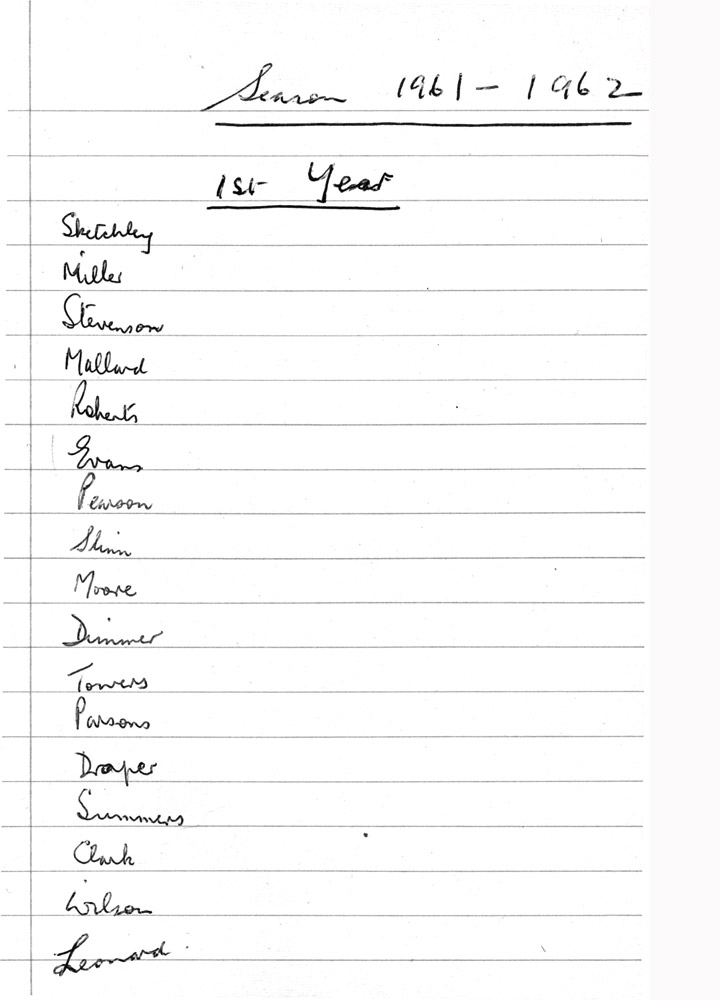 Season 1961-1962
1st Year
Sketchley
Miller
Stevenson
Mallard
Roberts
Evans
Pearson
Slinn
Moore
Dimmer
Towers
Parsons
Draper
Summers
Clark
Wilson
Leonard